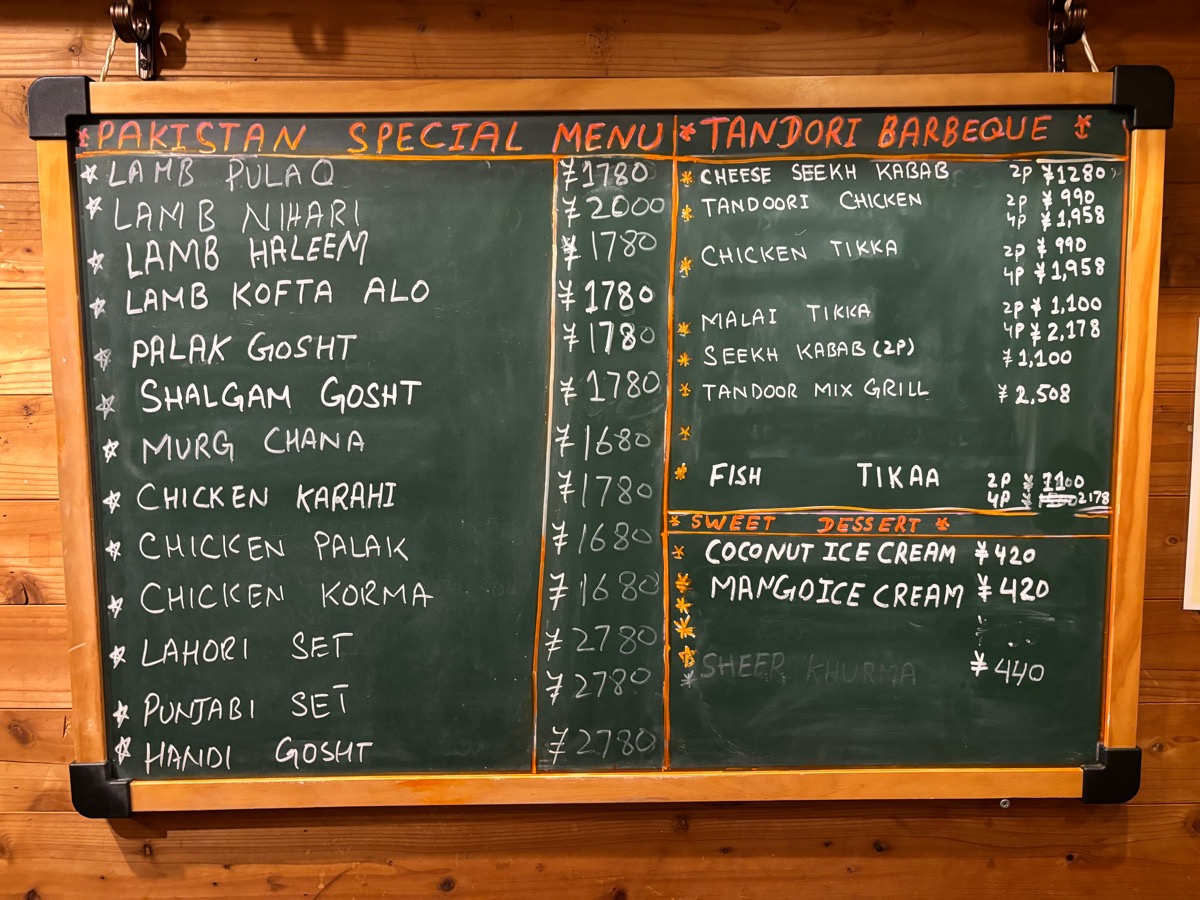 PAKISTAN SPECIAL MENU
LAMB PULAO ¥1780
LAMB NIHARI ¥2000
LAMB HALEEM ¥1780
LAMB KOFTA ALO ¥1780
PALAK GOSHT ¥1780
SHALGAM GOSHT ¥1780
MURG CHANA ¥1680
CHICKEN KARAHI ¥1780
CHICKEN PALAK ¥1680
CHICKEN KORMA ¥1680
LAHORI SET ¥2780
PUNJABI SET ¥2780
HANDI GOSHT ¥2780
TANDORI BARBEQUE
CHEESE SEEKH KABAB 2P ¥1280
TANDOORI CHICKEN 2P ¥990
4P ¥1,958
CHICKEN TIKKA 2P ¥990
4P ¥1,958
MALAI TIKKA 2P ¥1,100
4P ¥2,178
SEEKH KABAB (2P) ¥1,100
TANDOOR MIX GRILL ¥2,508
FISH TIKAA 2P ¥1100
4P ¥ 2178
SWEET DESSERT
COCONUT ICE CREAM ¥420
MANGO ICE CREAM ¥420
SHEER KHURMA ¥440